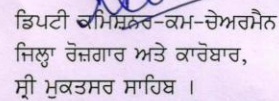 ਡਿਪਟੀ ਕਮਿਸ਼ਨਰ-ਕਮ-ਚੇਅਰਮੈਨ
ਜਿਲ੍ਹਾ ਰੋਜ਼ਗਾਰ ਅਤੇ ਕਾਰੋਬਾਰ,
ਸ੍ਰੀ ਮੁਕਤਸਰ ਸਾਹਿਬ ।